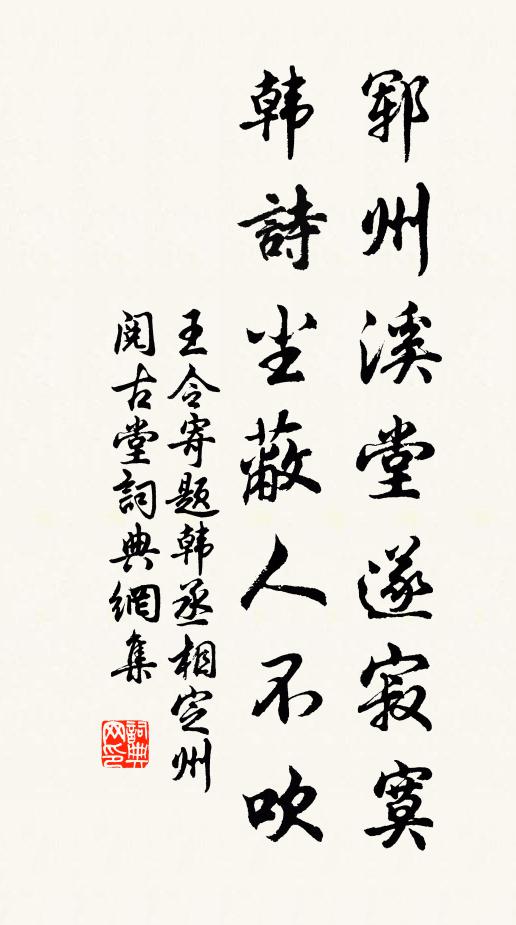 鄆州溪堂遂寂寞
韩詩尘蔽人不吹
王令寄题韩丞相定州
阅古堂詞典網集
詞典
网印